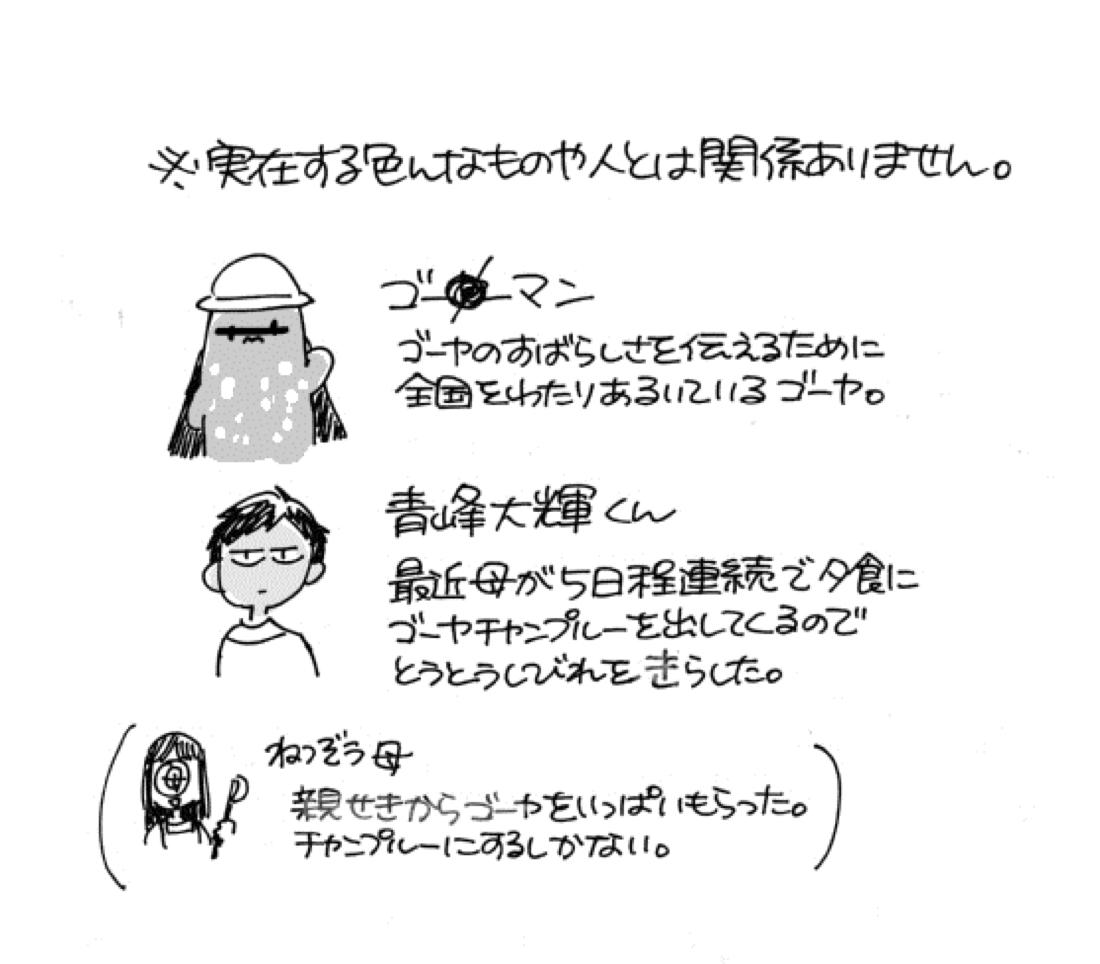 ※実在する色んなものや人とは関係ありません。
ゴー ーマン
ゴーヤのすばらしさを伝えるために
全国をわたりあるいているゴーヤ。
青峰大輝くん
最近母が5日程連続で夕食に
ゴーヤチャンプルーを出してくるので
とうとうしびれをきらした。
ねつぞう母
母
親せきからゴーヤをいっぱいもらった。
チャンプルーにするしかない。